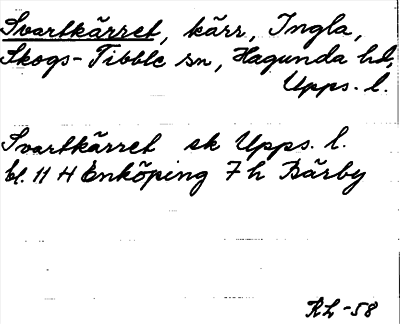 Svartkärret, kärr, Ingla,
Skogs-Tibble sn, Hagunda hd,
Upps. l.
Svartkärret sk Upps. l.
bl. 11 H Enköping 7 h Bärby
RL -58